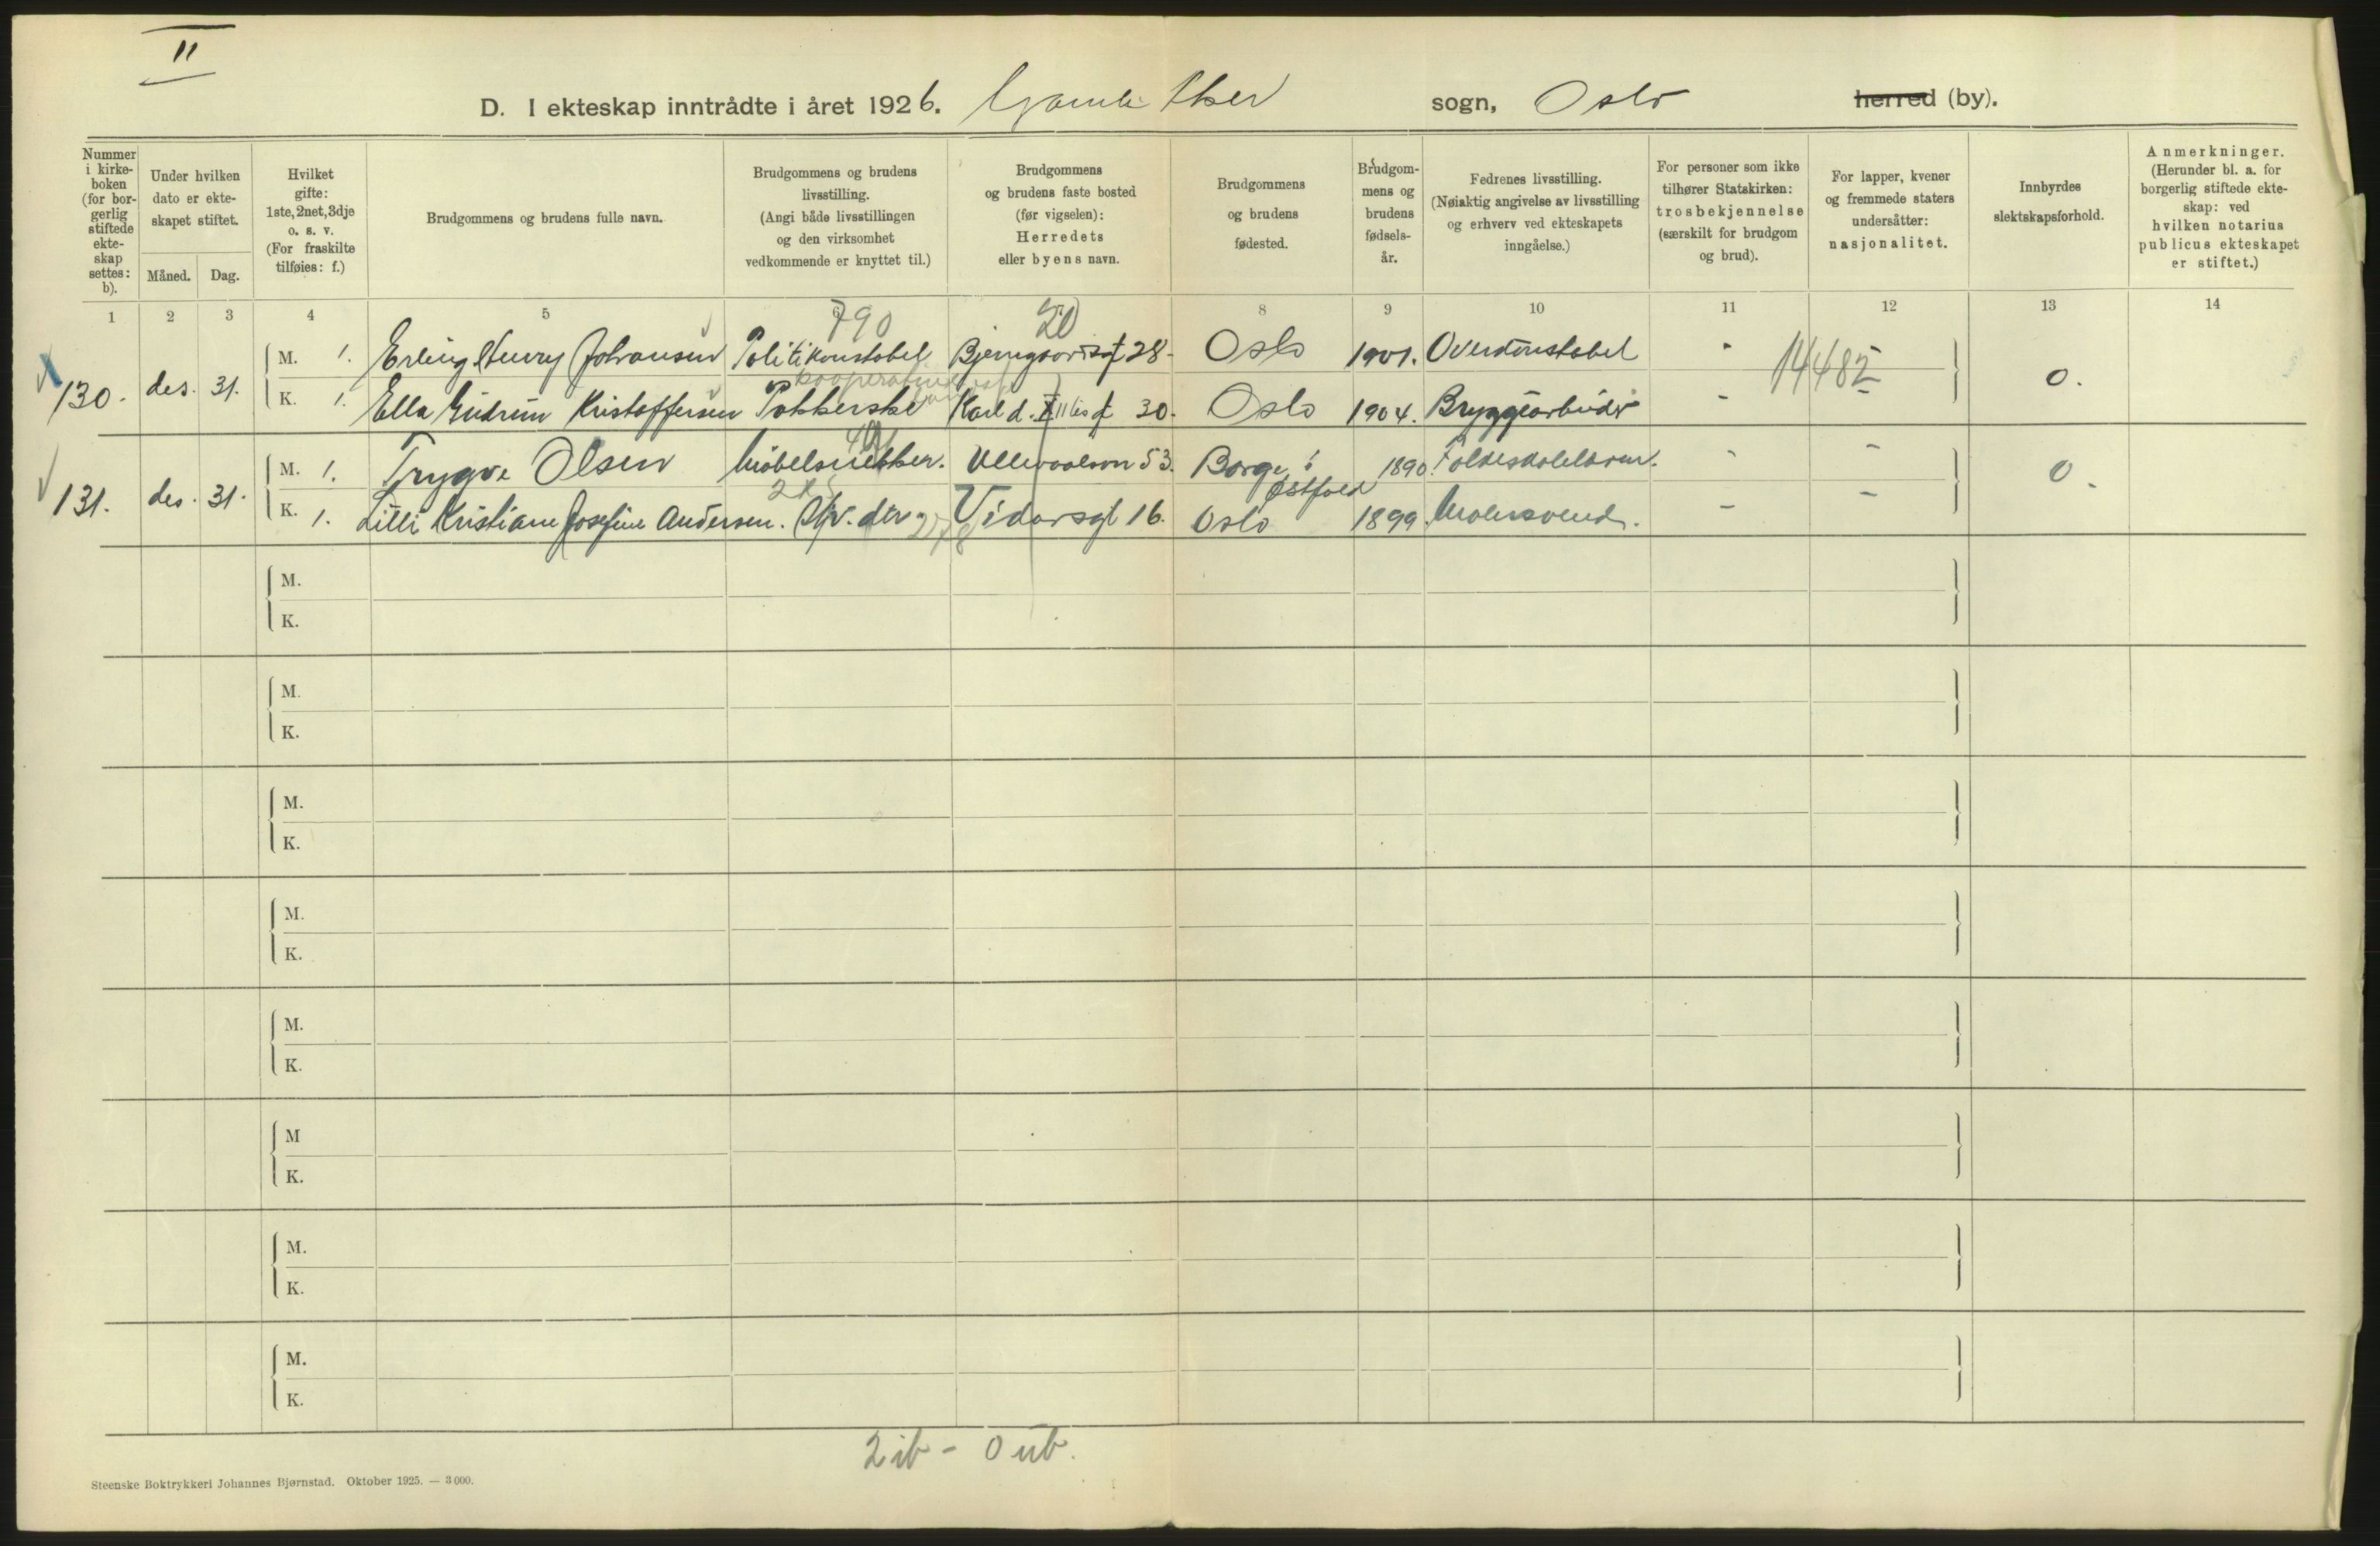 II
D. I ekteskap inntrådte i året 1926. Gamle Aker sogn, Oslo herred (by).
Nummer i kirke-boken (for bor-gerlig stiftede ekte-skap settes: b).
Under hvilken dato er ekte-skapet stiftet.
Måned. Dag.
Hvilket gifte: 1ste, 2net, 3dje o. s. v. (For fraskilte tilføies: f.)
Brudgommens og brudens fulle navn.
Brudgommens og brudens livsstilling. (Angi både livsstillingen og den virksomhet vedkommende er knyttet til.)
Brudgommens og brudens faste bosted (før vigselen): Herredets eller byens navn.
Brudgommens og brudens fødested.
Brudgom-mens og brudens fødsels-år.
Fedrenes livsstilling. (Nøiaktig angivelse av livsstilling og erhverv ved ekteskapets inngåelse.)
For personer som ikke tilhører Statskirken: trosbekjennelse (særskilt for brudgom og brud).
For lapper, kvener og fremmede staters undersåtter: nasjonalitet.
Innbyrdes slektskapsforhold.
Anmerkninger. (Herunder bl. a. for borgerlig stiftede ekte-skap: ved hvilken notarius publicus ekteskapet er stiftet.)
1 2 3 4 5 6 7 8 9 10 11 12 13 14
790 20
130. des. 31. M. 1. Erling Henry Johansen Politikonstabel 28. Oslo 1901. Overkonstabel - 14482 0.
K. 1. Ella Gudrun Kristoffersen Pakkerske Karl d. XII's gt 30. Oslo 1904. Bryggearbeider -
131. des. 31. M. 1. Trygve Olsen Møbelsnekker. Ullevaalsvn 53. Borge i Østfold 1890. - - 0.
K. 1. Lilli Kristiane Josefine Andersen. Vidarsgt 16. Oslo 1899. Malersvend. - -
M.
K.
M.
K.
M.
K.
M.
K.
M.
K.
M
K.
M.
K.
M.
K.
2 ib - 0 ub.
Steenske Boktrykkeri Johannes Bjørnstad. Oktober 1925. — 3 000.